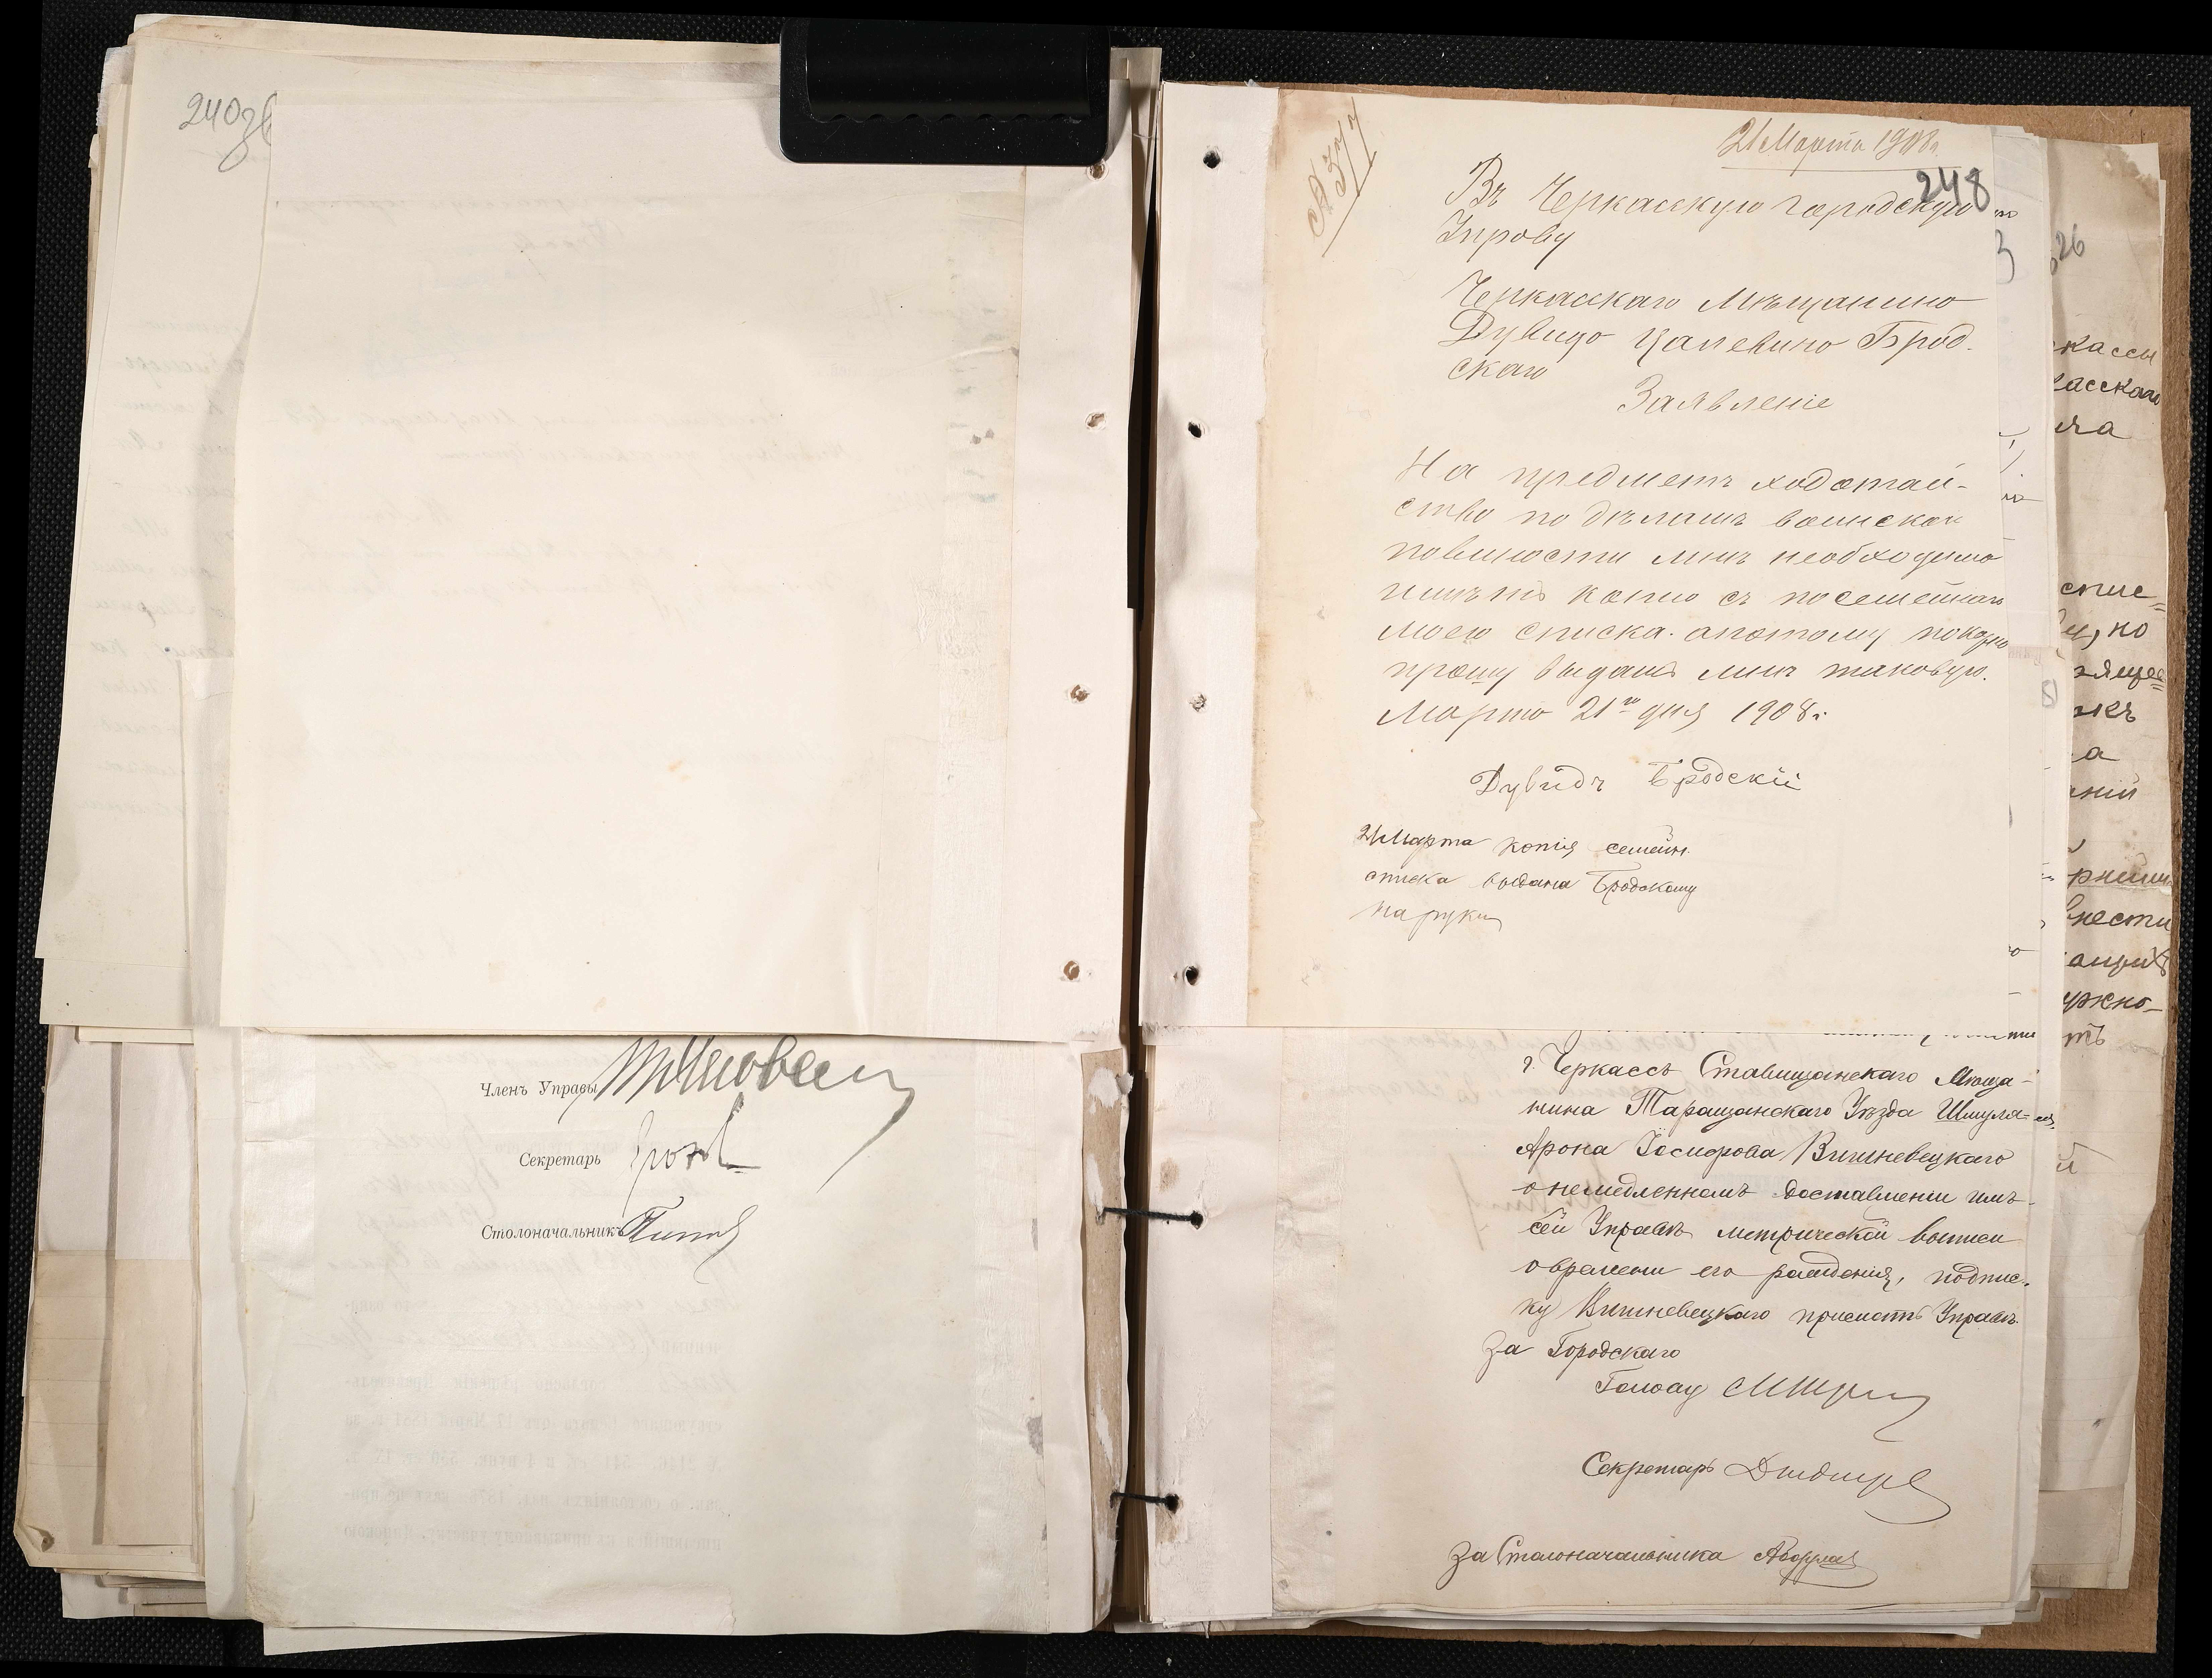 240зв
Членъ Управы
Секретарь
Столоначальникъ
21 Марта 1908 г.
248
Въ Черкасскую городскую
Управу
Черкасскаго Мѣщанино
Дувидо Цалевино Брод-
скаго
Заявленіе
На предметъ ходотай-
ство по дѣламъ воинской
повиности мнѣ необходимо
имѣть копию съ посемейнаго
моего списка. апотому покорно
прошу выдать мнѣ таковую.
Марто 21го дня 1908 г.
Дувидъ Бродскій
21 Марта копія семейн.
списка выдана Бродскому
на руки
г. Черкассъ Ставищанскаго Мѣща-
нина Таращанскаго Уѣзда Шмуля-
Арона Іосифова Вишневецкаго
о немедленномъ доставлении имъ
сей Управѣ метрической выписи
о времени его рожденія, подпис-
ку Вишневецкаго прислать Управѣ.
За Городского
Голову
Секретарь
За Столоначальника
26
кассы
касскаго
спис-
но
жъ
а
ній
внести